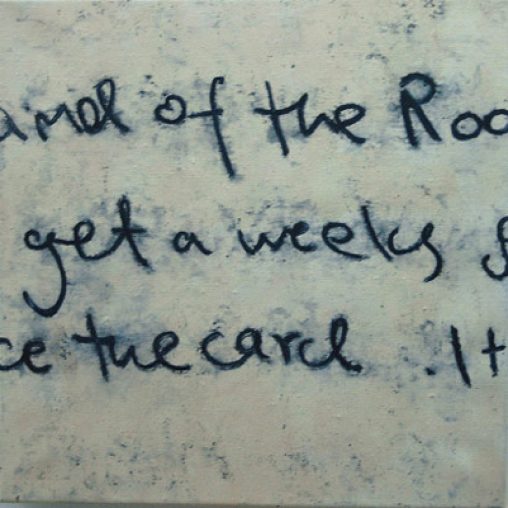 of the Roo
get a weeks
ce the card . It